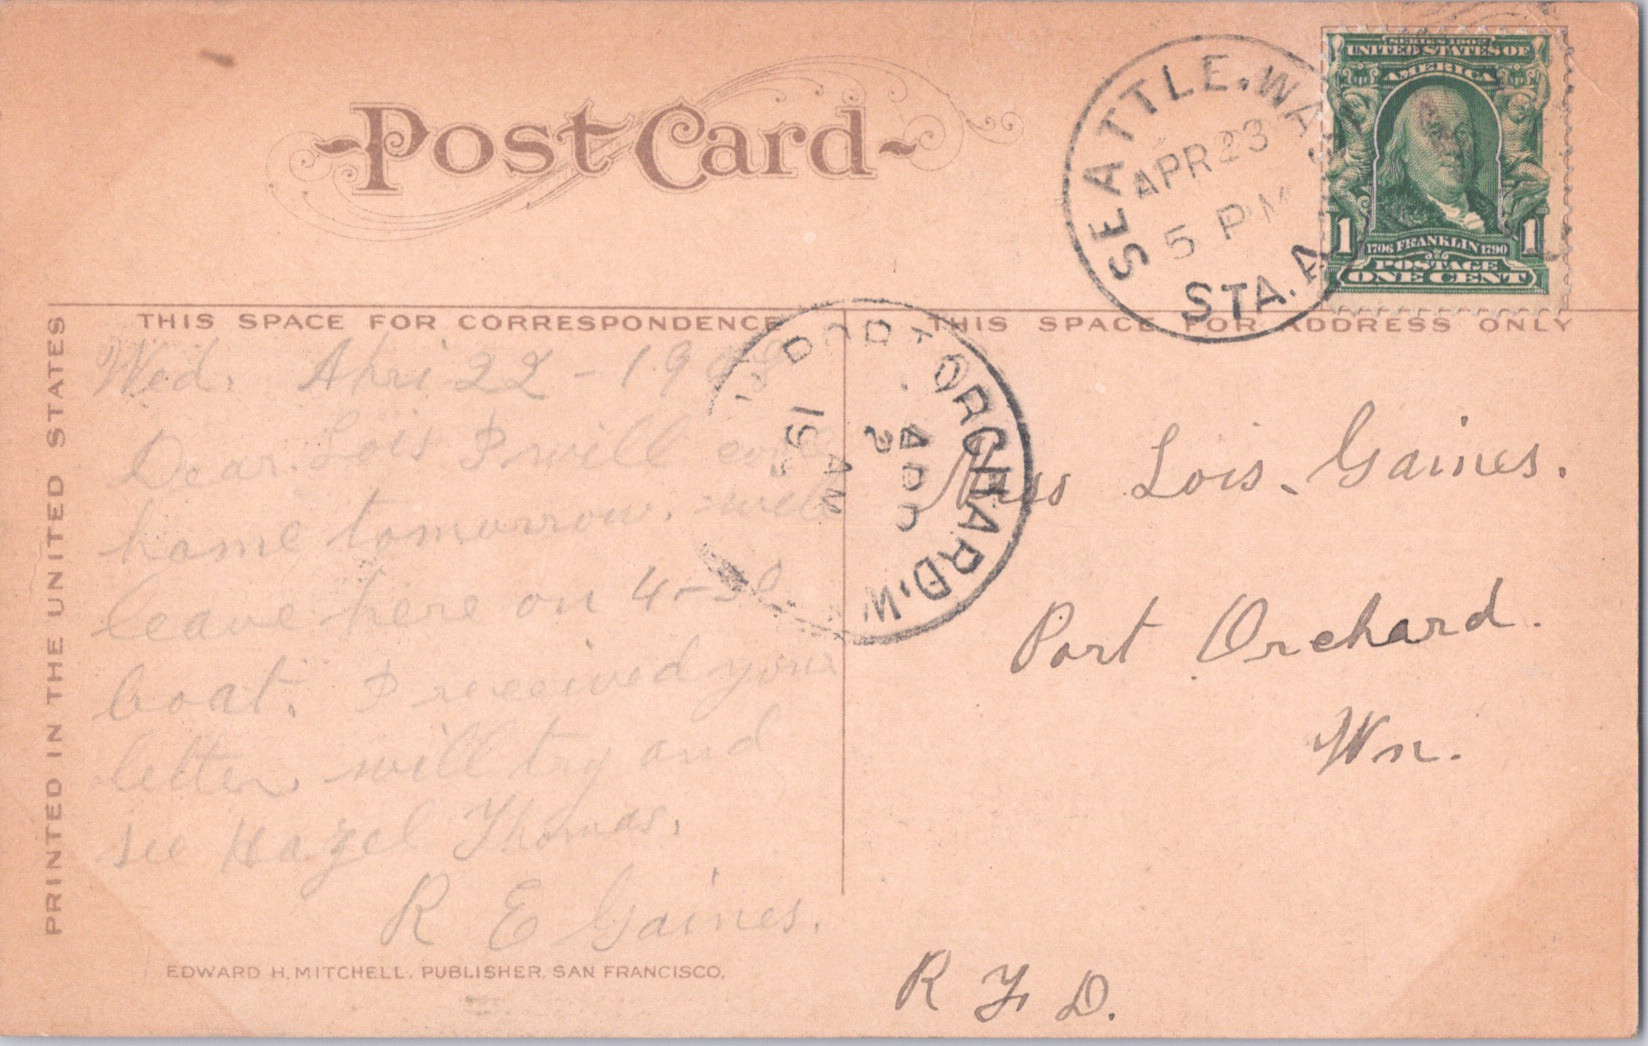 Post Card
SEATTLE, WASH.
APR 23
5 PM
STA. A
SERIES 1902
UNITED STATES OF
AMERICA
1 1
1706 FRANKLIN 1790
POSTAGE
ONE CENT
PRINTED IN THE UNITED STATES
THIS SPACE FOR CORRESPONDENCE
THIS SPACE FOR ADDRESS ONLY
PORT ORCHARD, W
AM
Wed. Apri 22 - 190
Dear Lois I will come
home tomorrow. will
leave here on 4-30
boat. I received your
letter, will try and
see Hazel Thomas.
R E Gaines.
Miss Lois Gaines.
Port Orchard.
Wn.
R F D.
EDWARD H. MITCHELL, PUBLISHER, SAN FRANCISCO.